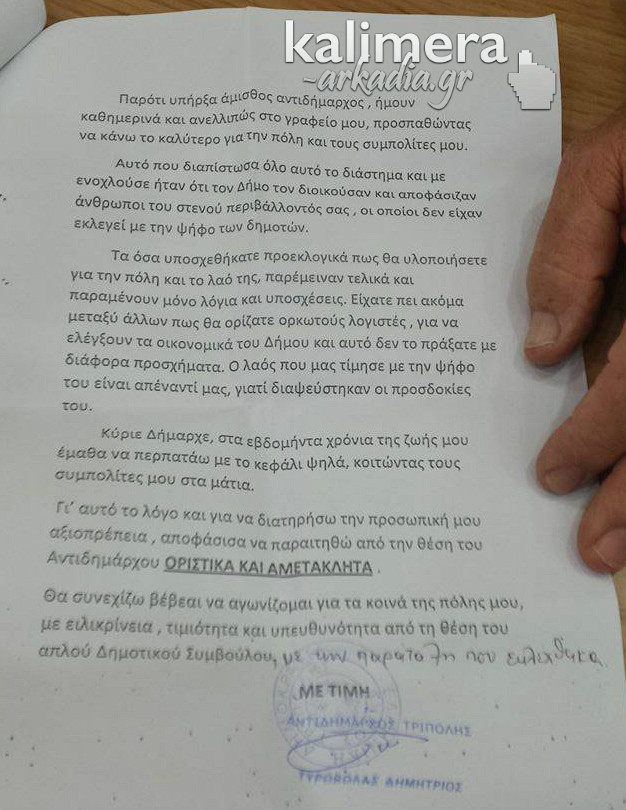 kalimera
-arkadia.gr
Παρότι υπήρξα άμισθος αντιδήμαρχος , ήμουν
καθημερινά και ανελλιπώς στο γραφείο μου, προσπαθώντας
να κάνω το καλύτερο για την πόλη και τους συμπολίτες μου.
Αυτό που διαπίστωσα όλο αυτό το διάστημα και με
ενοχλούσε ήταν ότι τον Δήμο τον διοικούσαν και αποφάσιζαν
άνθρωποι του στενού περιβάλλοντός σας , οι οποίοι δεν είχαν
εκλεγεί με την ψήφο των δημοτών.
Τα όσα υποσχεθήκατε προεκλογικά πως θα υλοποιήσετε
για την πόλη και το λαό της, παρέμειναν τελικά και
παραμένουν μόνο λόγια και υποσχέσεις. Είχατε πει ακόμα
μεταξύ άλλων πως θα ορίζατε ορκωτούς λογιστές , για να
ελέγξουν τα οικονομικά του Δήμου και αυτό δεν το πράξατε με
διάφορα προσχήματα. Ο λαός που μας τίμησε με την ψήφο
του είναι απέναντί μας, γιατί διαψεύστηκαν οι προσδοκίες
του.
Κύριε Δήμαρχε, στα εβδομήντα χρόνια της ζωής μου
έμαθα να περπατάω με το κεφάλι ψηλά, κοιτώντας τους
συμπολίτες μου στα μάτια.
Γι' αυτό το λόγο και για να διατηρήσω την προσωπική μου
αξιοπρέπεια , αποφάσισα να παραιτηθώ από την θέση του
Αντιδημάρχου ΟΡΙΣΤΙΚΑ ΚΑΙ ΑΜΕΤΑΚΛΗΤΑ .
Θα συνεχίζω βέβεαι να αγωνίζομαι για τα κοινά της πόλης μου,
με ειλικρίνεια , τιμιότητα και υπευθυνότητα από τη θέση του
απλού Δημοτικού Συμβούλου, με την παράταξη που εκλέχθηκα
ΜΕ ΤΙΜΗ
ΑΝΤΙΔΗΜΑΡΧΟΣ ΤΡΙΠΟΛΗΣ
ΤΥΡΟΒΟΛΑΣ ΔΗΜΗΤΡΙΟΣ